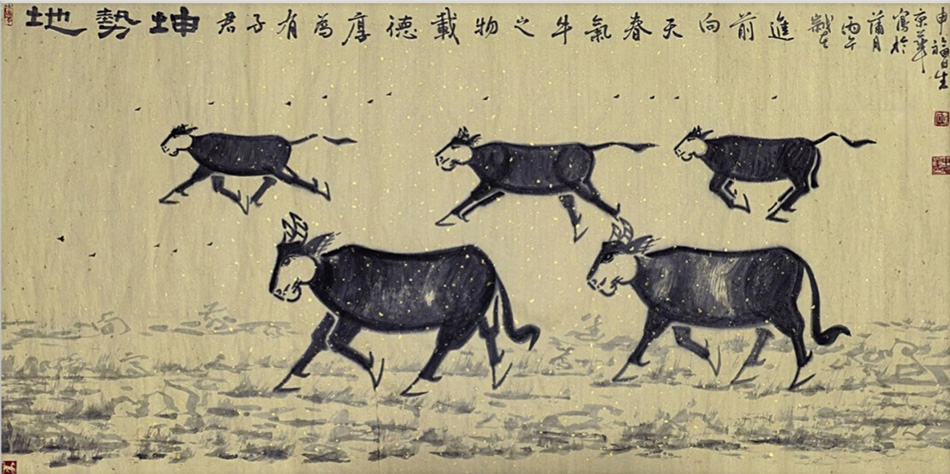 地勢坤
君子有為厚德載物之牛氣春天向前進
歲在
丙午
蒲月
寫於
京華
申福星